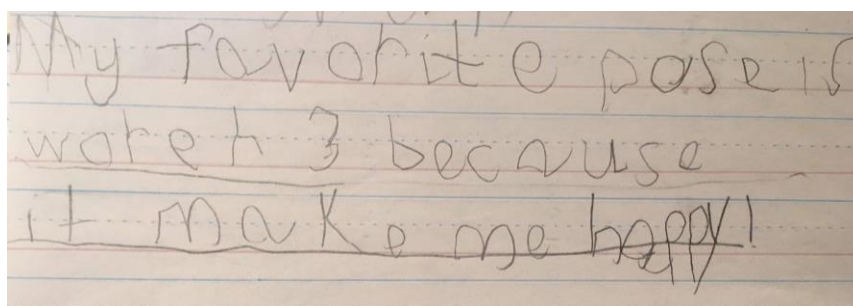 My favorite pose is
woreh 3 because
it make me happy!